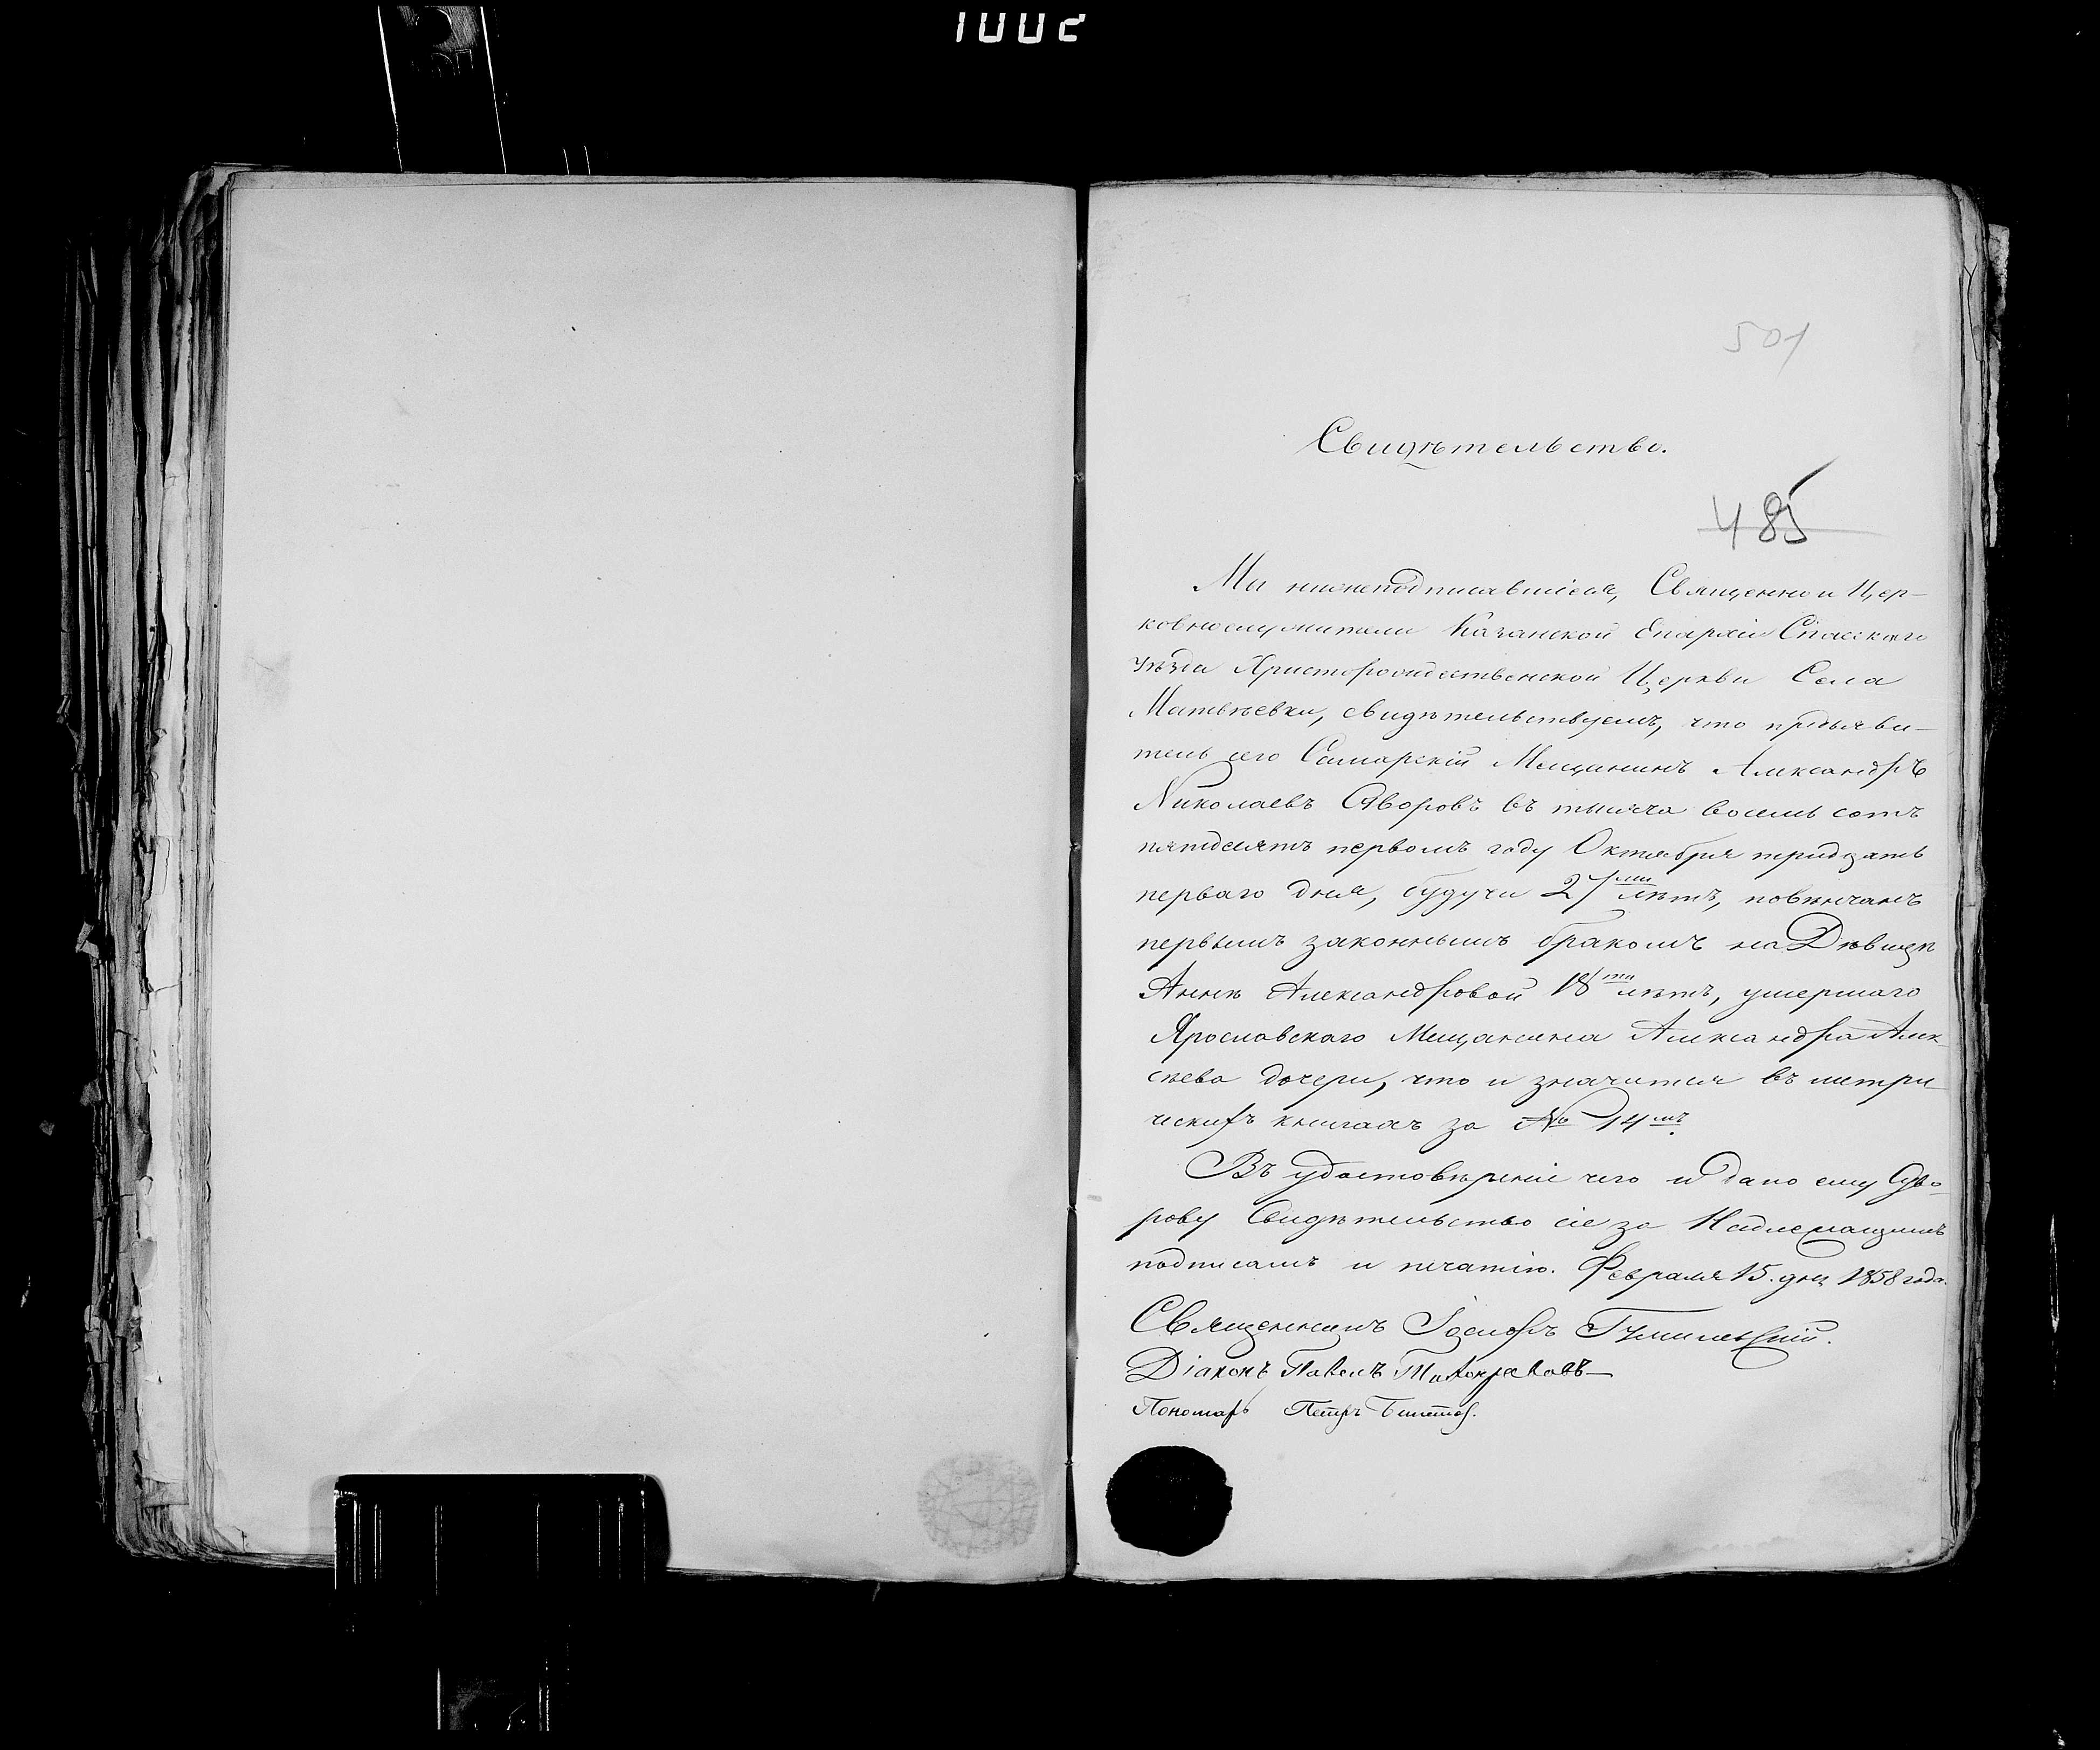 1002
501
Свидѣтельство.
485
Мы нижеподписавшіеся, Священно и Цер-
ковнослужители Казанской Епархіи Спасскаго
уѣзда Христорождественской Церкви Села
Матвѣевки, свидѣтельствуемъ, что предъяви-
тель сего Самарскій Мещанинъ Александръ
Николаевъ въ тысяча восемь сотъ
пятдесятъ первомъ году Октября тридцать
перваго дня, будучи 27ми лѣтъ, повѣнчанъ
первымъ законнымъ бракомъ на Дѣвицѣ
Аннѣ Александровой 18ти лѣтъ, умершаго
Ярославскаго Мещанина Александра Алек-
сѣева дочери, что и значится въ метри-
ческихъ книгахъ за № 14мъ.
Въ удостовѣреніе чего и дано ему
рову Свидѣтельство сіе за Надлежащимъ
подписамъ и печатію. Февраля 15. дня 1858 года.
Священникъ
Діаконъ Павелъ
Пономарь Петръ